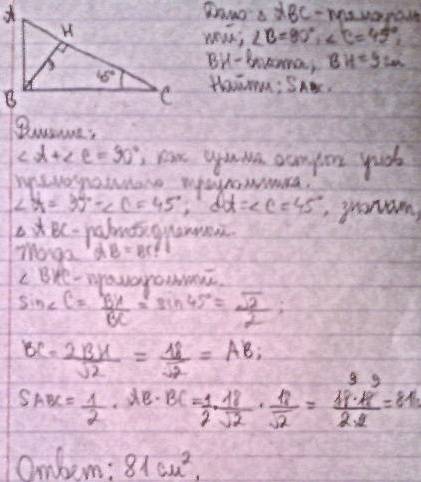 A
H
9
B
45°
C
Дано: △ ABC - прямоуголь
ный; ∠B=90°, ∠C=45°,
BH - высота, BH=9 см
Найти: SABC.
Решение:
∠A+∠C=90°, как сумма острых углов
прямоугольного треугольника.
∠A= 90°-∠C=45°; ∠A=∠C=45°, значит,
△ ABC - равнобедренный.
Тогда AB=BC.
∠ BHC - прямоугольный.
sin∠C= BH/BC = sin45°= √2/2;
BC= 2BH/√2 = 18/√2 = AB;
SABC= 1/2 · AB·BC= 1/2 · 18/√2 · 18/√2 = 18·18/2·2 =81
9 9
Ответ: 81 см².